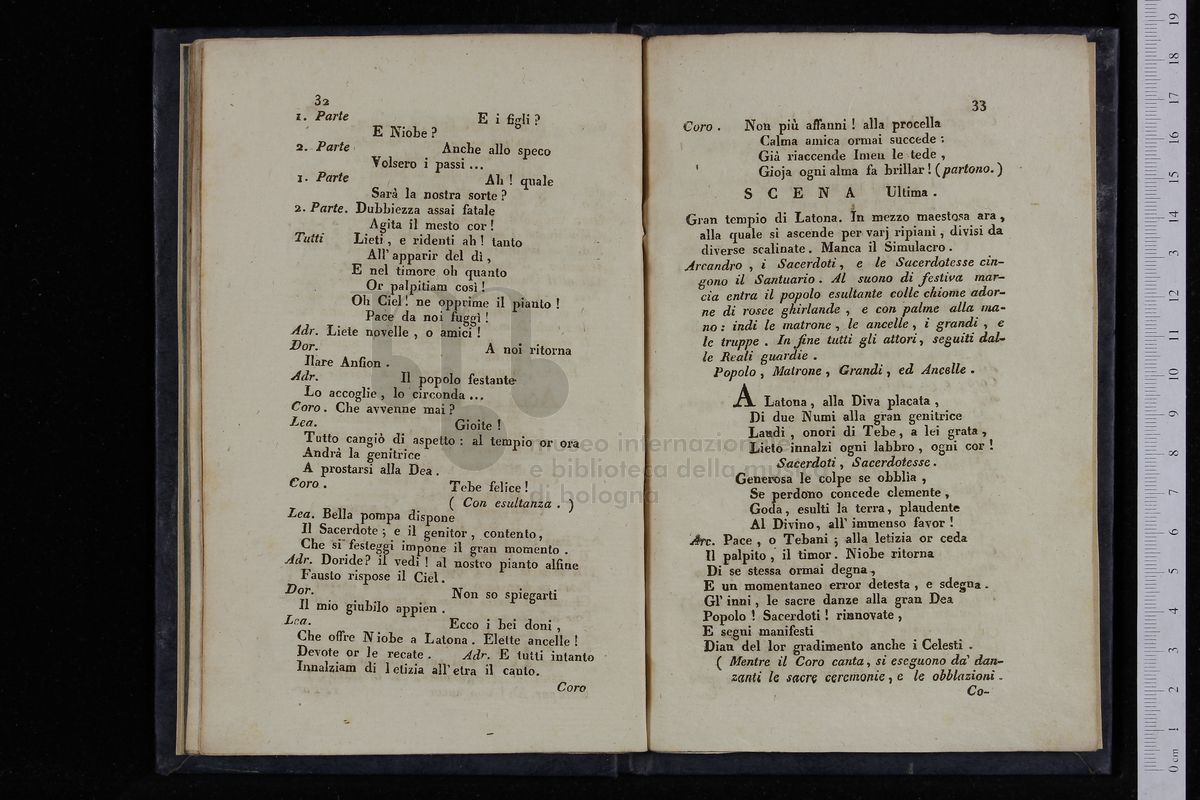 32
1. Parte E i figli ?
E Niobe ?
2. Parte Anche allo speco
Volsero i passi ...
1. Parte Ah ! quale
Sarà la nostra sorte ?
2. Parte. Dubbiezza assai fatale
Agita il mesto cor !
Tutti Lieti , e ridenti ah ! tanto
All' apparir del dì ,
E nel timore oh quanto
Or palpitiam così !
Oh Ciel ! ne opprime il pianto !
Pace da noi fuggì !
Adr. Liete novelle , o amici !
Dor. A noi ritorna
Ilare Anfion .
Adr. Il popolo festante
Lo accoglie , lo circonda ...
Coro . Che avvenne mai ?
Lea. Gioite !
Tutto cangiò di aspetto : al tempio or ora
Andrà la genitrice
A prostarsi alla Dea .
Coro . Tebe felice !
( Con esultanza . )
Lea. Bella pompa dispone
Il Sacerdote ; e il genitor , contento,
Che si festeggi impone il gran momento .
Adr. Doride? il vedi ! al nostro pianto alfine
Fausto rispose il Ciel .
Dor. Non so spiegarti
Il mio giubilo appien .
Lea. Ecco i bei doni ,
Che offre Niobe a Latona . Elette ancelle !
Devote or le recate . Adr. E tutti intanto
Innalziam di letizia all' etra il canto.
Coro
33
Coro . Non più affanni ! alla procella
Calma amica ormai succede :
Già riaccende Imen le tede ,
Gioja ogni alma fa brillar ! ( partono. )
SCENA Ultima .
Gran tempio di Latona. In mezzo maestosa ara ,
alla quale si ascende per varj ripiani , divisi da
diverse scalinate . Manca il Simulacro .
Arcandro , i Sacerdoti , e le Sacerdotesse cin-
gono il Santuario . Al suono di festiva mar-
cia entra il popolo esultante colle chiome ador-
ne di rosee ghirlande , e con palme alla ma-
no : indi le matrone , le ancelle , i grandi , e
le truppe . In fine tutti gli attori , seguiti dal-
le Reali guardie .
Popolo , Matrone , Grandi , ed Ancelle .
A Latona , alla Diva placata ,
Di due Numi alla gran genitrice
Laudi , onori di Tebe , a lei grata ,
Lieto innalzi ogni labbro , ogni cor !
Sacerdoti , Sacerdotesse .
Generosa le colpe se obblia ,
Se perdono concede clemente ,
Goda , esulti la terra , plaudente
Al Divino , all' immenso favor !
Arc. Pace , o Tebani ; alla letizia or ceda
Il palpito , il timor . Niobe ritorna
Di se stessa ormai degna ,
E un momentaneo error detesta , e sdegna .
Gl' inni , le sacre danze alla gran Dea
Popolo ! Sacerdoti ! rinnovate ,
E segni manifesti
Dian del lor gradimento anche i Celesti .
( Mentre il Coro canta , si eseguono da' dan-
zanti le sacre ceremonie , e le obblazioni .
Co-
museo internazionale
e biblioteca della musica
di bologna
0 cm 1 2 3 4 5 6 7 8 9 10 11 12 13 14 15 16 17 18 19